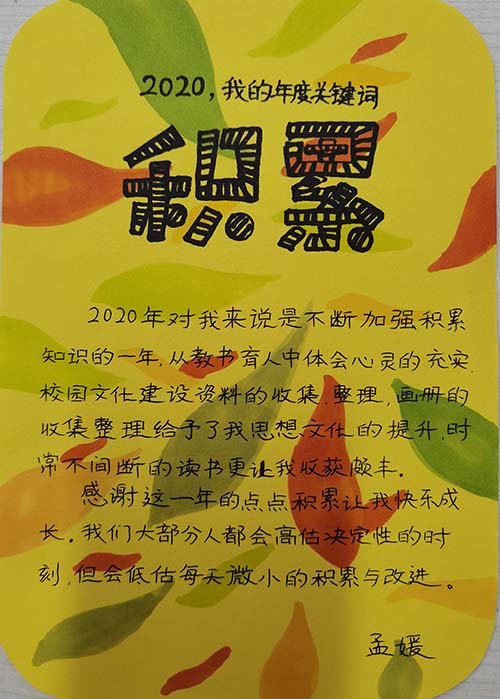 2020，我的年度关键词
积累
2020年对我来说是不断加强积累
知识的一年，从教书育人中体会心灵的充实，
校园文化建设资料的收集、整理，画册的
收集整理给予了我思想文化的提升，时
常不间断的读书更让我收获颇丰。
感谢这一年的点点积累让我快乐成
长。我们大部分人都会高估决定性的时
刻，但会低估每天微小的积累与改进。
孟媛